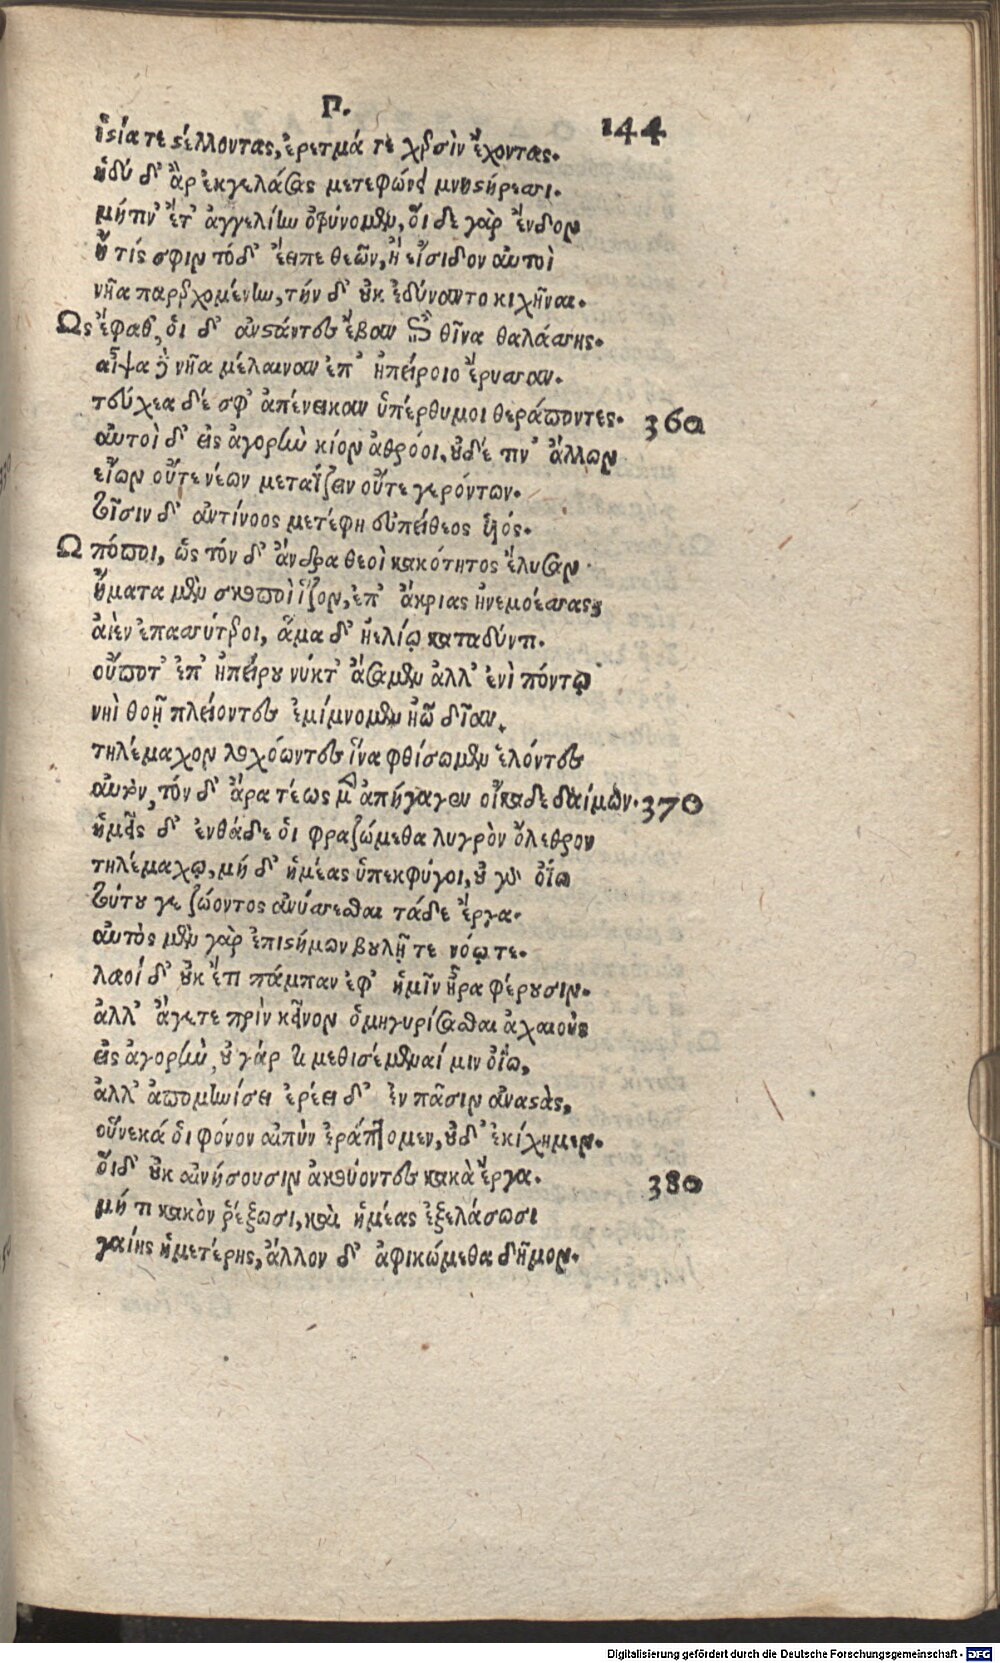 Π.
144
ἱστία τε στέλλοντας, ἐρετμά τε χερσὶν ἔχοντας.
ἡδὺ δ' ἂρ ἐκγελάσας μετεφώνει μνηστήρεσσι.
μήτιν' ἔτ' ἀγγελίην ὀτρύνομεν, οἵδε γὰρ ἔνδον
ἤ τίς σφιν τόδ' ἔειπε θεῶν, ἢ εἴσιδον αὐτοὶ
νῆα παρερχομένην, τὴν δ' οὐκ ἐδύναντο κιχῆναι.
Ως ἔφαθ', οἱ δ' ἀνστάντες ἔβαν ἐπὶ θῖνα θαλάσσης.
αἶψα δὲ νῆα μέλαιναν ἐπ' ἠπείροιο ἔρυσσαν.
τεύχεα δέ σφ' ἀπένεικαν ὑπέρθυμοι θεράποντες. 360
αὐτοὶ δ' εἰς ἀγορὴν κίον ἀθρόοι, οὐδέ τιν' ἄλλων
εἴων οὔτε νέων μεταΐζειν οὔτε γερόντων.
τοῖσιν δ' ἀντίνοος μετέφη εὐπείθεος υἱός.
Ω πόποι, ὡς τόν δ' ἄνδρα θεοὶ κακότητος ἔλυσαν.
ἤματα μὲν σκοποὶ ἷζον, ἐπ' ἄκριας ἠνεμοέσσας
αἰὲν ἐπασσύτεροι, ἅμα δ' ἠελίῳ καταδύντι.
οὔποτ' ἐπ' ἠπείρου νύκτ' ἄσαμεν ἀλλ' ἐνὶ πόντῳ
νηὶ θοῇ πλείοντες ἐμίμνομεν ἠῶ δῖαν,
τηλέμαχον λοχόωντες ἵνα φθίσωμεν ἑλόντες
αὐτόν, τόν δ' ἄρα τέως μὲν ἀπήγαγεν οἴκαδε δαίμων. 370
ἡμεῖς δ' ἐνθάδε οἱ φραζώμεθα λυγρὸν ὄλεθρον
τηλέμαχῳ, μή δ' ἡμέας ὑπεκφύγοι, οὐ γὰρ ὀΐω
τούτου γε ζώοντος ἀνύσσεσθαι τάδε ἔργα.
αὐτὸς μὲν γὰρ ἐπιστήμων βουλῇ τε νόῳ τε.
λαοί δ' οὐκ ἔτι πάμπαν ἐφ' ἡμῖν ἦρα φέρουσιν.
ἀλλ' ἄγετε πρὶν κεῖνον ὁμηγυρίσασθαι ἀχαιοὺς
εἰς ἀγορὴν, οὐ γάρ τι μεθησέμεναί μιν ὀΐω,
ἀλλ' ἀπομηνίσει ἐρέει δ' ἐν πᾶσιν ἀναστὰς,
οὕνεκά οἱ φόνον αἰπὺν ἐράπτομεν, οὐδ' ἐκίχημεν.
οἵδ' οὐκ αἰνήσουσιν ἀκούοντες κακὰ ἔργα. 380
μή τι κακὸν ῥέξωσι, καὶ ἡμέας ἐξελάσωσι
γαίης ἡμετέρης, ἄλλον δ' ἀφικώμεθα δῆμον.
Digitalisierung gefördert durch die Deutsche Forschungsgemeinschaft - DFG